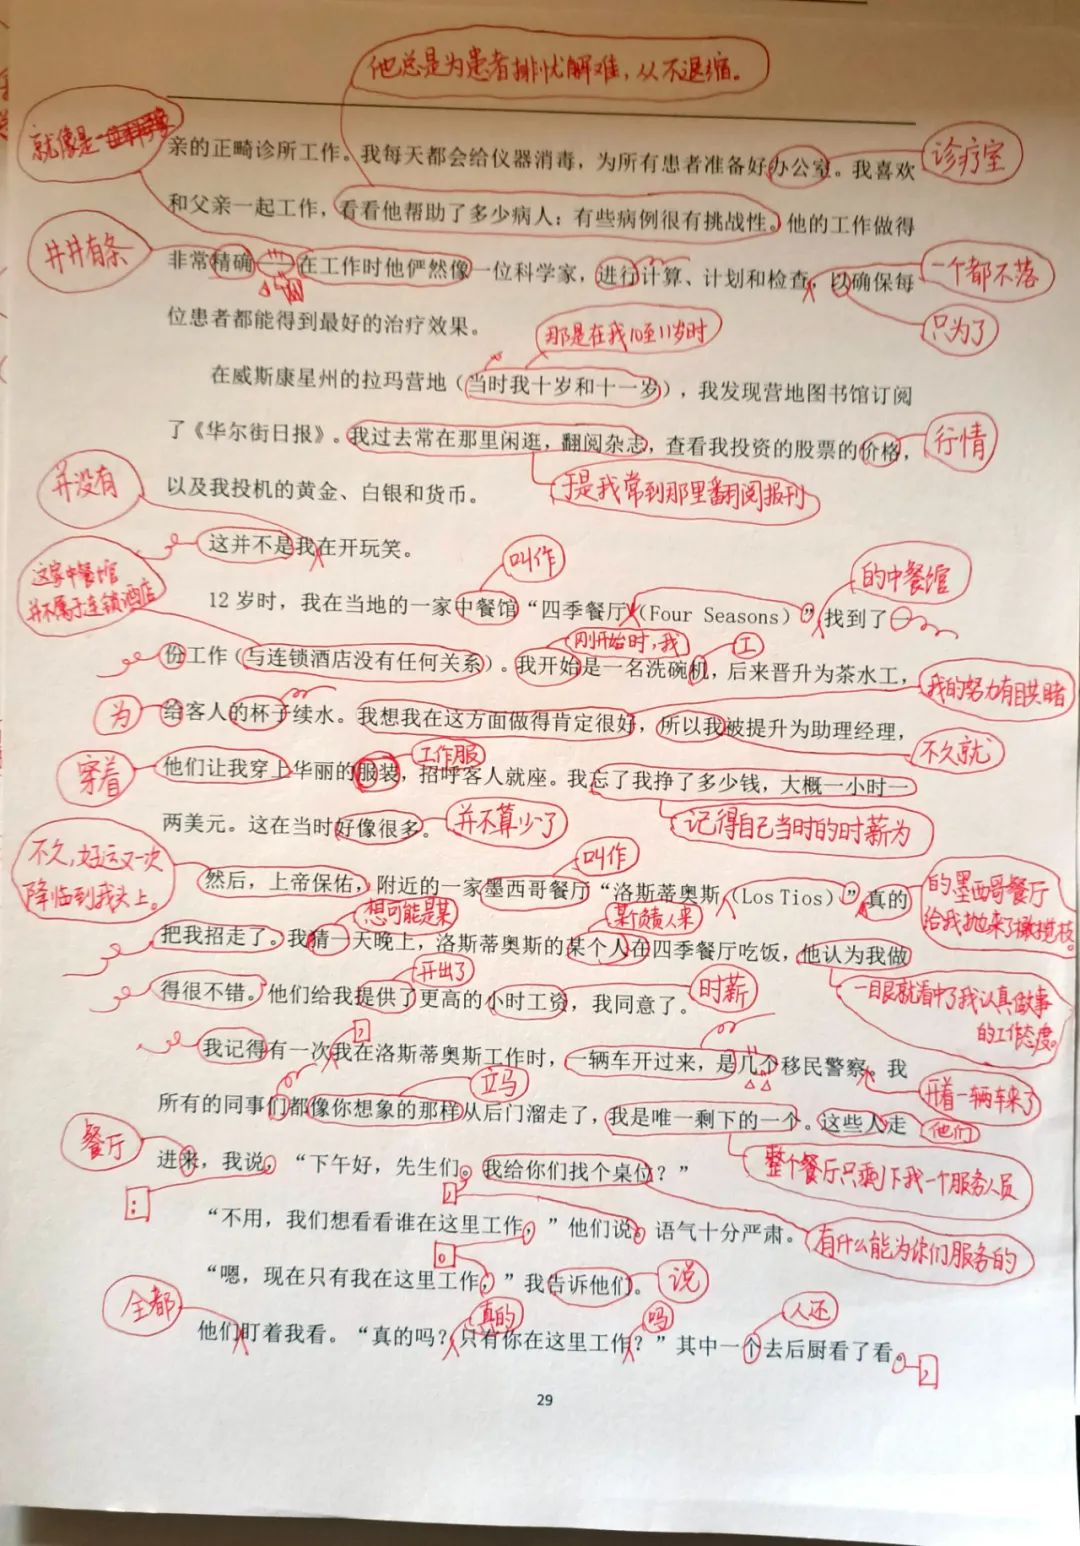 他总是为患者排忧解难，从不退缩。
就像是
亲的正畸诊所工作。我每天都会给仪器消毒，为所有患者准备好办公室。我喜欢
诊疗室
和父亲一起工作，看看他帮助了多少病人；有些病例很有挑战性。他的工作做得
井井有条
非常精确——在工作时他俨然像一位科学家，进行计算、计划和检查，以确保每
一个都不落
位患者都能得到最好的治疗效果。
只为了
那是在我10至11岁时
在威斯康星州的拉玛营地（当时我十岁和十一岁），我发现营地图书馆订阅
了《华尔街日报》。我过去常在那里闲逛，翻阅杂志，查看我投资的股票的价格，
行情
以及我投机的黄金、白银和货币。
于是我常到那里翻阅报刊
并没有
这并不是我在开玩笑。
叫作
的中餐馆
这家中餐馆
并不属于连锁酒店
12 岁时，我在当地的一家中餐馆“四季餐厅（Four Seasons）”找到了一
刚开始时，我
工
份工作（与连锁酒店没有任何关系）。我开始是一名洗碗机，后来晋升为茶水工，
我的努力有目共睹
为
给客人的杯子续水。我想我在这方面做得肯定很好，所以我被提升为助理经理，
不久就
穿着
工作服
他们让我穿上华丽的服装，招呼客人就座。我忘了我挣了多少钱，大概一小时一
两美元。这在当时好像很多。
并不算少了
记得自己当时的时薪为
不久，好运又一次
降临到我头上。
叫作
然后，上帝保佑，附近的一家墨西哥餐厅“洛斯蒂奥斯（Los Tios）”真的
的墨西哥餐厅
给我抛来了橄榄枝。
想可能是某
某负责人来
把我招走了。我猜一天晚上，洛斯蒂奥斯的某个人在四季餐厅吃饭，他认为我做
开出了
时薪
得很不错。他们给我提供了更高的小时工资，我同意了。
一眼就看中了我认真做事
的工作态度。
我记得有一次我在洛斯蒂奥斯工作时，一辆车开过来，是几个移民警察，我
立马
开着一辆车来了
所有的同事们都像你想象的那样从后门溜走了，我是唯一剩下的一个。这些人走
他们
餐厅
进来，我说，“下午好，先生们。我给你们找个桌位？”
整个餐厅只剩下我一个服务人员
“不用，我们想看看谁在这里工作，”他们说。语气十分严肃。
有什么能为你们服务的
“嗯，现在只有我在这里工作，”我告诉他们。
说
全都
真的
吗
人还
他们盯着我看。“真的吗？只有你在这里工作？”其中一个去后厨看了看。
29